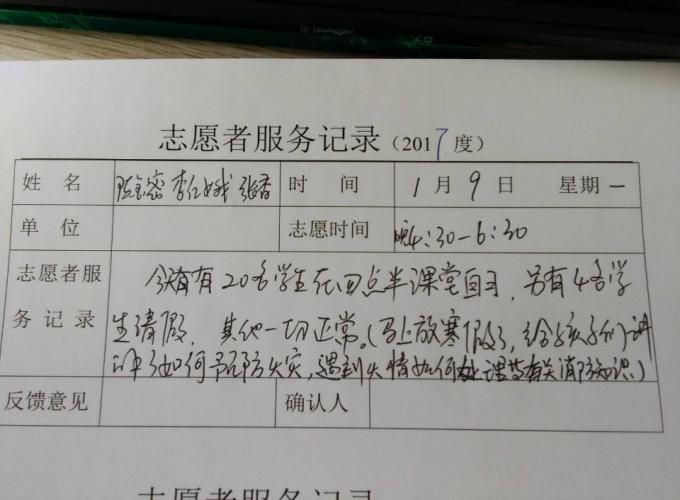 志愿者服务记录（2017度）
姓 名 陈宝密 李红娥 张香 时 间 1月9日 星期一
单 位 志愿时间 晚4:30-6:30
志愿者服务记录 今有20名学生在四点半课堂自习，另有4名学
生请假，其他一切正常。（马上放寒假了，给孩子们讲
讲了如何预防火灾，遇到火情如何处理等有关消防知识）
反馈意见 确认人
志愿者服务记录